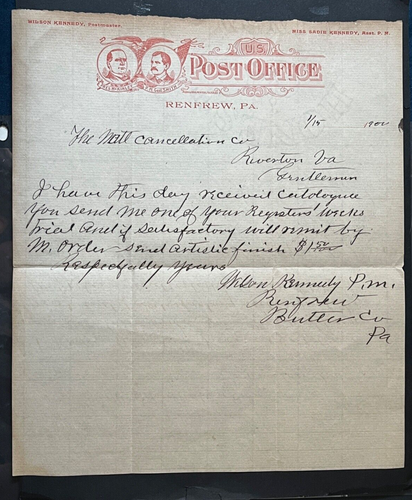 WILSON KENNEDY, Postmaster.
MISS SADIE KENNEDY, Asst. P. M.
U.S.
POST OFFICE
RENFREW, PA.
1/15 1900
The Natl Cancellation Co
Riverton Va
Gentlemen
I have this day received Catalogue
You send me one of your Registers weeks
trial and if satisfactory will remit by
M. Order send artistic finish
Respectfully Yours
Wilson Kennedy P.m.
Renfrew
Butler Co
Pa